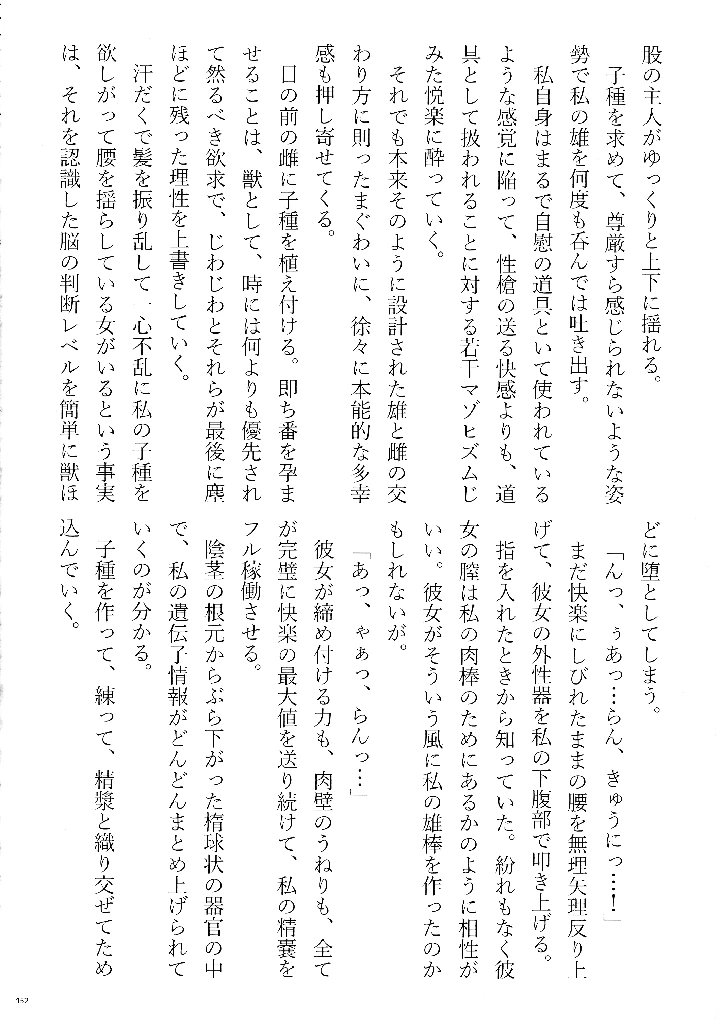 股の主人がゆっくりと上下に揺れる。
　子種を求めて、尊厳すら感じられないような姿
勢で私の雄を何度も呑んでは吐き出す。
　私自身はまるで自慰の道具といて使われている
ような感覚に陥って、性槍の送る快感よりも、道
具として扱われることに対する若干マゾヒズムじ
みた悦楽に酔っていく。
　それでも本来そのように設計された雄と雌の交
わり方に則ったまぐわいに、徐々に本能的な多幸
感も押し寄せてくる。
　目の前の雌に子種を植え付ける。即ち番を孕ま
せることは、獣として、時には何よりも優先され
て然るべき欲求で、じわじわとそれらが最後に塵
ほどに残った理性を上書きしていく。
　汗だくで髪を振り乱して一心不乱に私の子種を
欲しがって腰を揺らしている女がいるという事実
は、それを認識した脳の判断レベルを簡単に獣ほ
どに堕としてしまう。
「んっ、ぅあっ…らん、きゅうにっ…！」
　まだ快楽にしびれたままの腰を無理矢理反り上
げて、彼女の外性器を私の下腹部で叩き上げる。
　指を入れたときから知っていた。紛れもなく彼
女の膣は私の肉棒のためにあるかのように相性が
いい。彼女がそういう風に私の雄棒を作ったのか
もしれないが。
「あっ、ゃぁっ、らんっ…」
　彼女が締め付ける力も、肉壁のうねりも、全て
が完璧に快楽の最大値を送り続けて、私の精嚢を
フル稼働させる。
　陰茎の根元からぶら下がった楕球状の器官の中
で、私の遺伝子情報がどんどんまとめ上げられて
いくのが分かる。
　子種を作って、練って、精漿と織り交ぜてため
込んでいく。
152